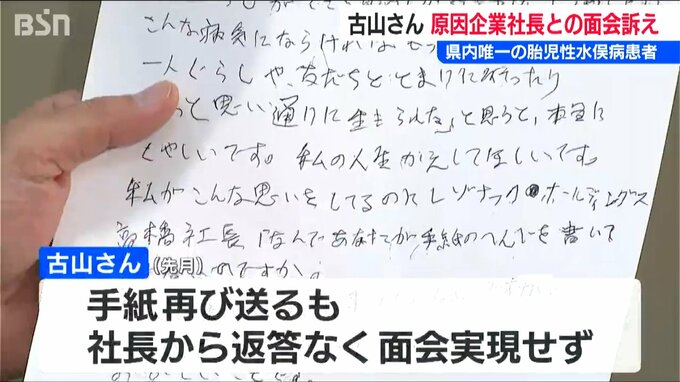 BSN
古山さん 原因企業社長との面会訴え
県内唯一の胎児性水俣病患者
こんな病気にならければも
一人ぐらしや、友だちととまりに行ったり
っと思い通りに生きられた」と思うと、本当に
くやしいです。私の人生かえしてほしいです。
私がこんな思いをしてるのにレゾナックホールディングス
高橋社長「なんであなたが手紙のへんじを書いて
のですか。
古山さん(先月)
手紙再び送るも
社長から返答なく面会実現せず